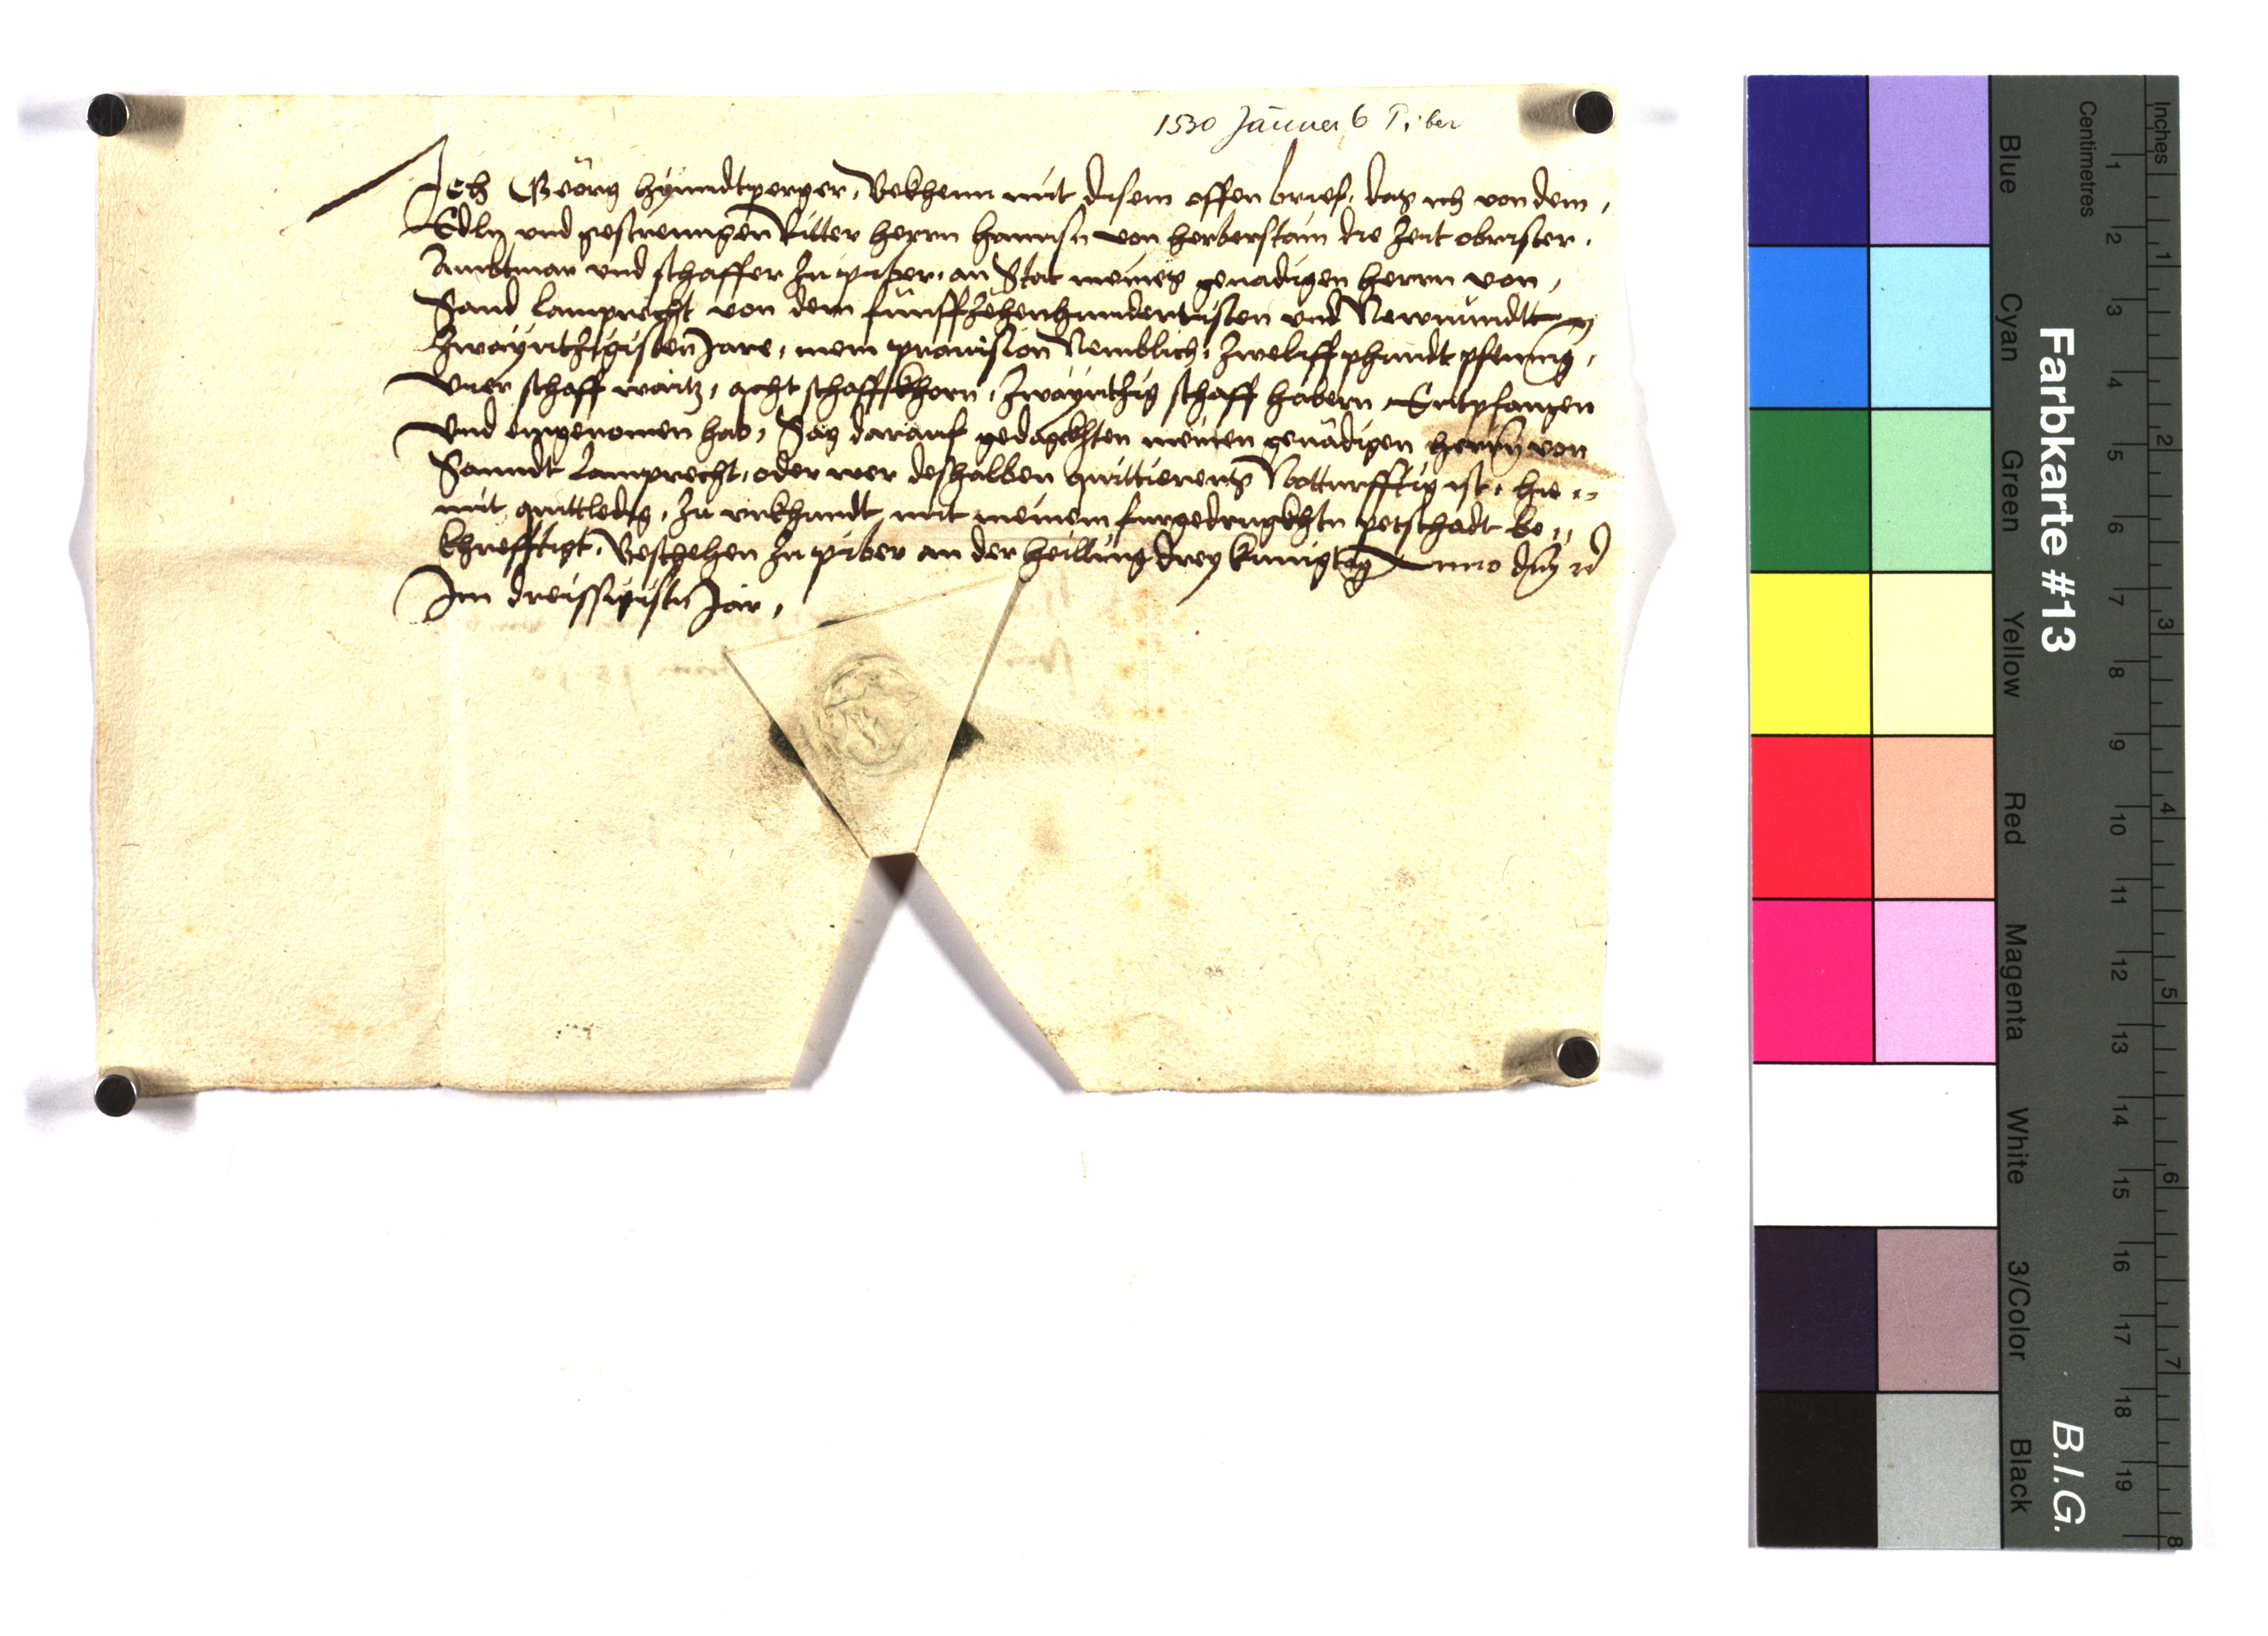 1530 Jänner 6 Piber
Ich Georg hyundtperger, Bekhenn mit disem offen brief, das ich von dem,
Edln und gestrenngen Ritter herrn hannsn von herberstain die Zeit obrister,
Ambtman und schaffer Zu piber, an Stat meines genadigen herrn von,
Sand Lamprecht von dem funffzehenhundertisten und Newnundt
Zwayntzigisten Jare, mein provision Nemblich, Zweliff phundt pfening,
vier schaff waitz, acht schaff khorn, Zwayntzig schaff habern, Entpfangen
und eingenomen hab, Sag darauf gedagkhten meinen genädigen herrn von
Sanndt Lamprecht, oder wer deshalben quittierens Notturfftig ist, hie
mit quittledig, Zu urkhundt mit meinem furgedrugkhtn petschadt be
khrefftigt, Beschehen Zu piber an der heilling drey kunig tag Anno dm̄ rc
Im dreissigistn Jar,
Farbkarte #13
B.I.G.
Inches
Centimetres
1 2 3 4 5 6 7 8
1 2 3 4 5 6 7 8 9 10 11 12 13 14 15 16 17 18 19
Blue
Cyan
Green
Yellow
Red
Magenta
White
3/Color
Black